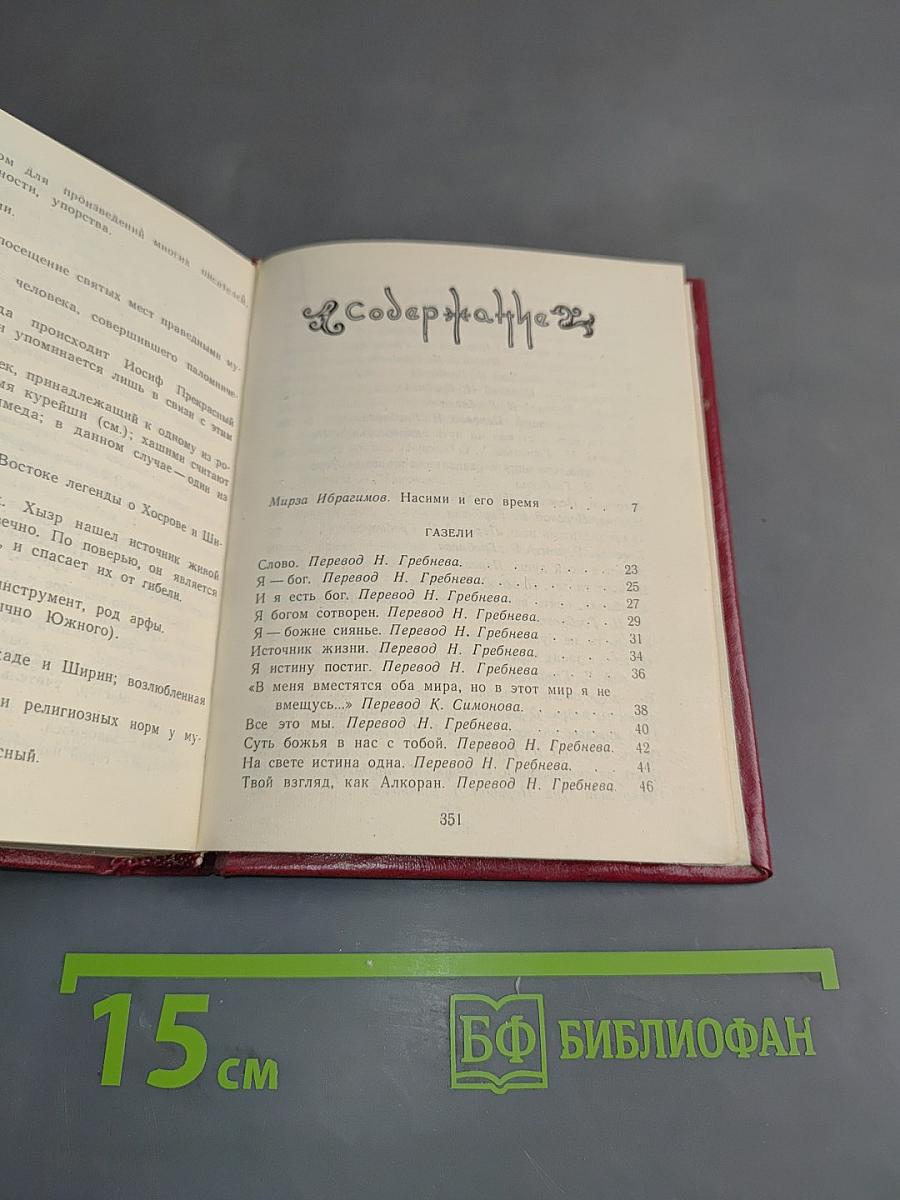 ом для произведений многих писателей,
ности, упорства.
ми.
посещение святых мест праведными му-
человека, совершившего паломниче-
да происходит Иосиф Прекрасный
и упоминается лишь в связи с этим
ек, принадлежащий к одному из ро-
мя курейши (см.); хашими считают
ммеда; в данном случае — один из
Востоке легенды о Хосрове и Ши-
Хызр нашел источник живой
вечно. По поверью, он является
, и спасает их от гибели.
инструмент, род арфы.
ычно Южного).
каде и Ширин; возлюбленная
и религиозных норм у му-
сный.
Содержание
Мирза Ибрагимов. Насими и его время . . . . . 7
ГАЗЕЛИ
Слово. Перевод Н. Гребнева. . . . . . . 23
Я — бог. Перевод Н. Гребнева. . . . . . 25
И я есть бог. Перевод Н. Гребнева. . . . . 27
Я богом сотворен. Перевод Н. Гребнева. . . . 29
Я — божие сиянье. Перевод Н. Гребнева . . . . 31
Источник жизни. Перевод Н. Гребнева. . . . . 34
Я истину постиг. Перевод Н. Гребнева . . . . 36
«В меня вместятся оба мира, но в этот мир я не
вмещусь...» Перевод К. Симонова. . . . . . 38
Все это мы. Перевод Н. Гребнева. . . . . . 40
Суть божья в нас с тобой. Перевод Н. Гребнева. 42
На свете истина одна. Перевод Н. Гребнева. . . 44
Твой взгляд, как Алкоран. Перевод Н. Гребнева. 46
351
15 см
БФ БИБЛИОФАН